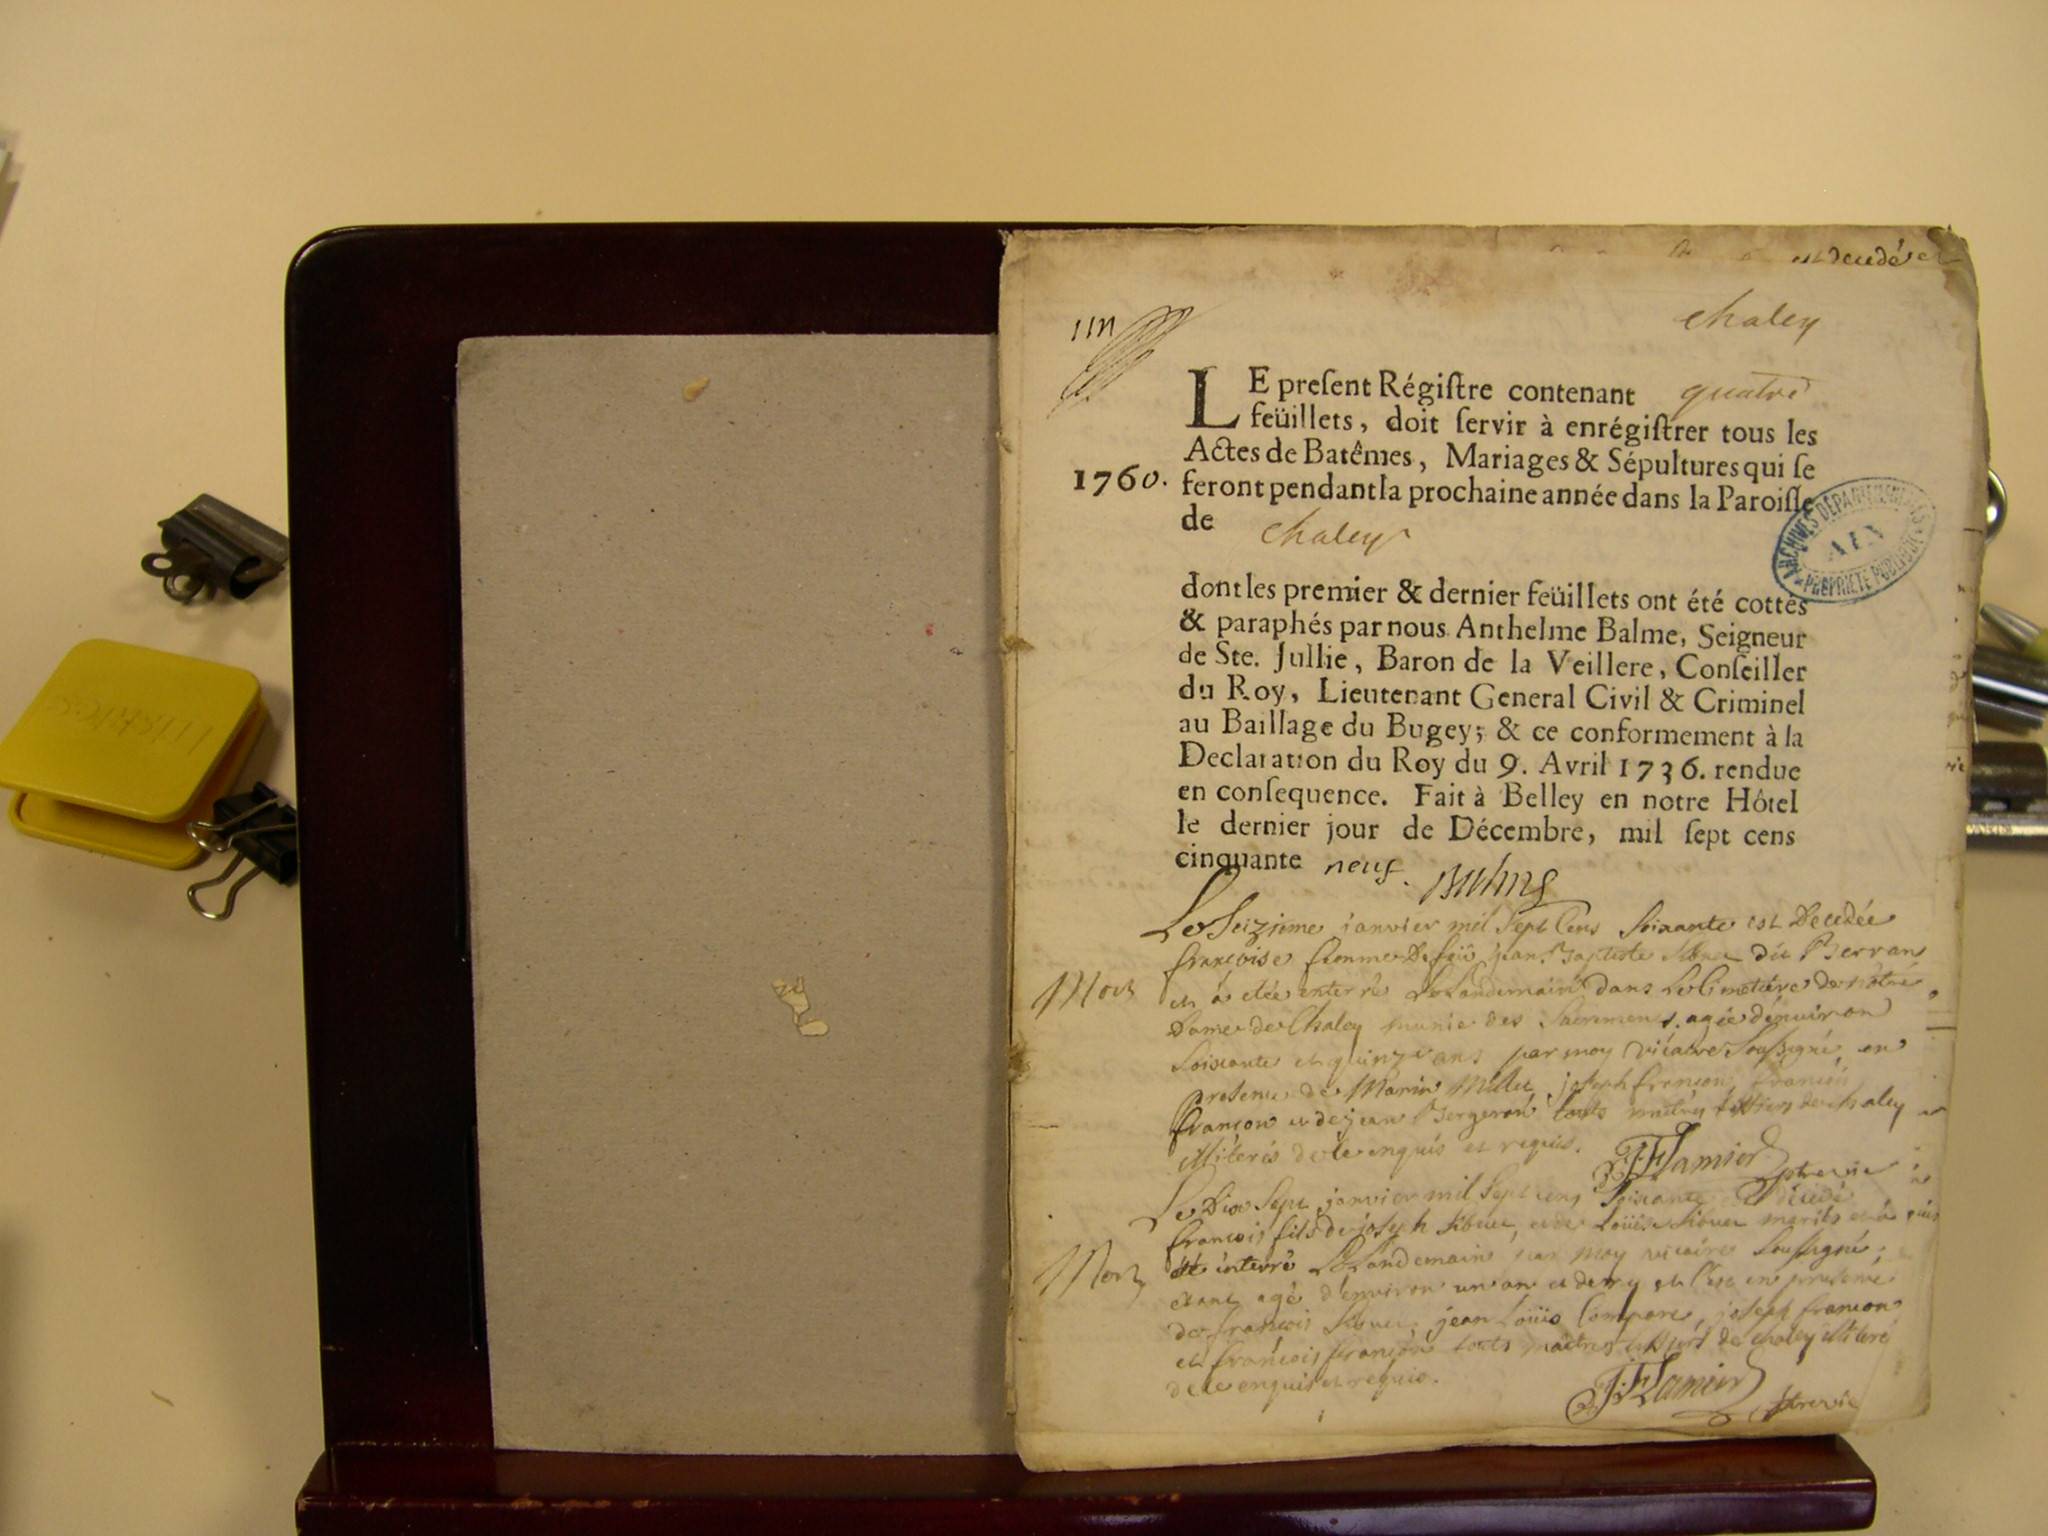 est decedé et
chaley
LE present Régistre contenant quatre
feüillets, doit servir à enrégistrer tous les
Actes de Batêmes, Mariages & Sépultures qui se
1760. feront pendant la prochaine année dans la Paroisse
de chaley
ARCHIVES DÉPARTEMENTALES
AIN
PROPRIÉTÉ PUBLIQUE
dont les premier & dernier feüillets ont été cottés
& paraphés par nous Anthelme Balme, Seigneur
de Ste. Jullie, Baron de la Veillere, Conseiller
du Roy, Lieutenant General Civil & Criminel
au Baillage du Bugey; & ce conformement à la
Declaration du Roy du 9. Avril 1736. rendue
en consequence. Fait à Belley en notre Hôtel
le dernier jour de Décembre, mil sept cens
cinquante neuf. Balme
Le Seizieme janvier mil Sept Cens Soixante est Decedée
francoise femme De feü jean Baptiste du
Mort et a etée enterré Le Landemain dans Le Cimetiere de notre
Dame de Chaley munie des Sacremens, agée d'environ
Soixante et quinze ans par moy vicaire Soussigné, en
presence de Marin Millet, joseph françon, francois
françon et de jean Bergeron touts de chaley
illiterés de ce enquis et requis. Lamier ptre vic
Le Dix Sept janvier mil Sept cens Soixante est décédé
francois fils de joseph Sibuet, et de Loüise Sibuet mariés et a
Mort été interré Le Landemain par moy vicaire Soussigné;
étant agé d'environ un an et demy et C'est en presence
de francois Sibuet, jean Loüis Compare, joseph francon
et francois françon touts maîtres de chaley illiteré
de ce enquis et requis.
Lamier ptre vic